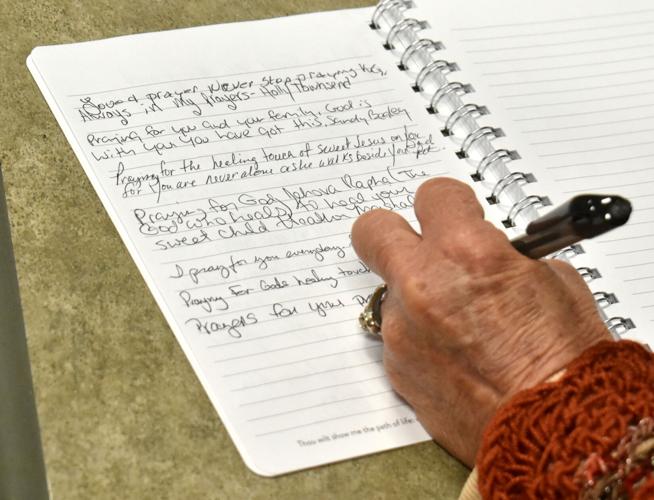 Love & prayer Never stop praying
Always in My Prayers - Holly Townsend
Praying for you and your family. God is
with you You have got this. Sandy
Praying for the healing touch of sweet Jesus on
for you are never alone as he walks beside you
Praying for God Jehova Rapha (The
God who heals) to heal your
sweet child
I pray for you everyday
Praying for Gods healing touch
Prayers for your
Thou wilt show me the path of life: